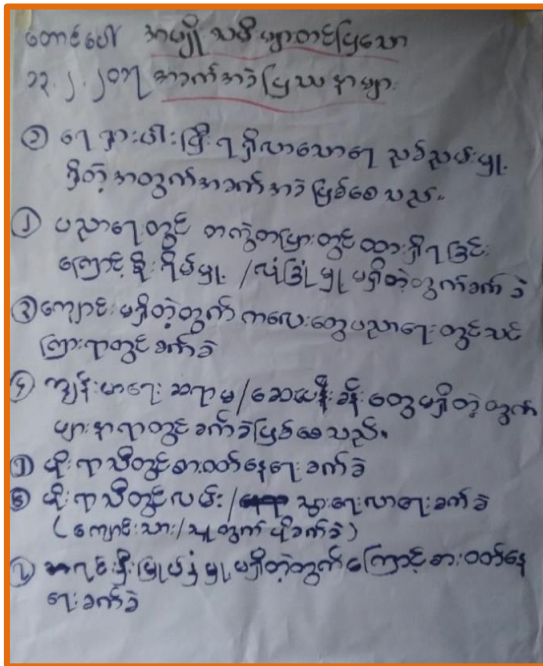 တောင်ပေါ် အမျိုးသမီးများတင်ပြသော
၁၃.၂.၂၀၁၇ အခက်အခဲပြဿနာများ
① ရေရှားပါးပြီးရရှိလာသောရေ ညစ်ညမ်းမှု
ရှိတဲ့အတွက်အခက်အခဲဖြစ်စေသည်။
② ပညာရေးတွင် တကွဲတပြားတွင်ထားရှိရခြင်း
ကြောင့်စိုးရိမ်မှု /လုံခြုံမှုမရှိတဲ့တွက်ခက်ခဲ
③ ကျောင်းမရှိတဲ့တွက် ကလေးတွေပညာရေးတွင်သင်
ကြားရာတွင်ခက်ခဲ
④ ကျန်းမာရေး ဆရာမ/ဆေးပေးခန်းတွေမရှိတဲ့တွက်
များနာရာတွင်ခက်ခဲဖြစ်စေသည်။
⑤ မိုးရာသီတွင်စားဝတ်နေရေးခက်ခဲ
⑥ မိုးရာသီတွင်လမ်း/ သွားရေးလာရေးခက်ခဲ
(ကျောင်းသား/သူတွက်ပိုခက်ခဲ)
⑦ အရင်းနှီးမြှုပ်နှံမှုမရှိတဲ့တွက်ကြောင့်စားဝတ်နေ
ရေးခက်ခဲ